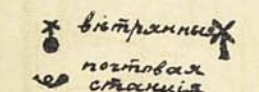 вѣтрянныя
почтовая
станція